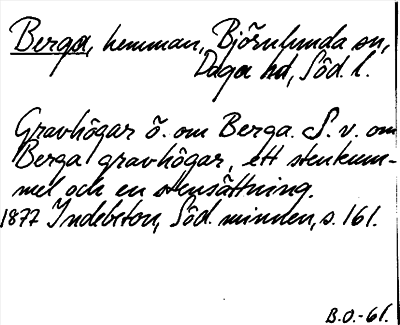 Berga, hemman, Björnlunda sn,
Daga hd, Söd. l.
Gravhögar ö. om Berga. S. v. om
Berga gravhögar, ett stenkum-
mel och en stensättning.
1877 Indebetou, Söd. minnen, s. 161.
B.O.-61.